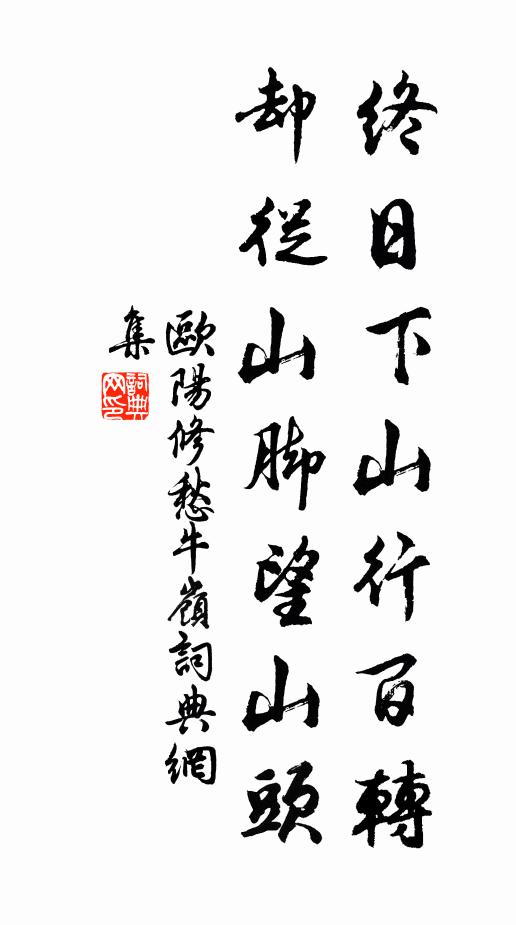 終日下山行百轉
却從山脚望山頭
歐陽修愁牛嶺詞典網
集
詞典
网印